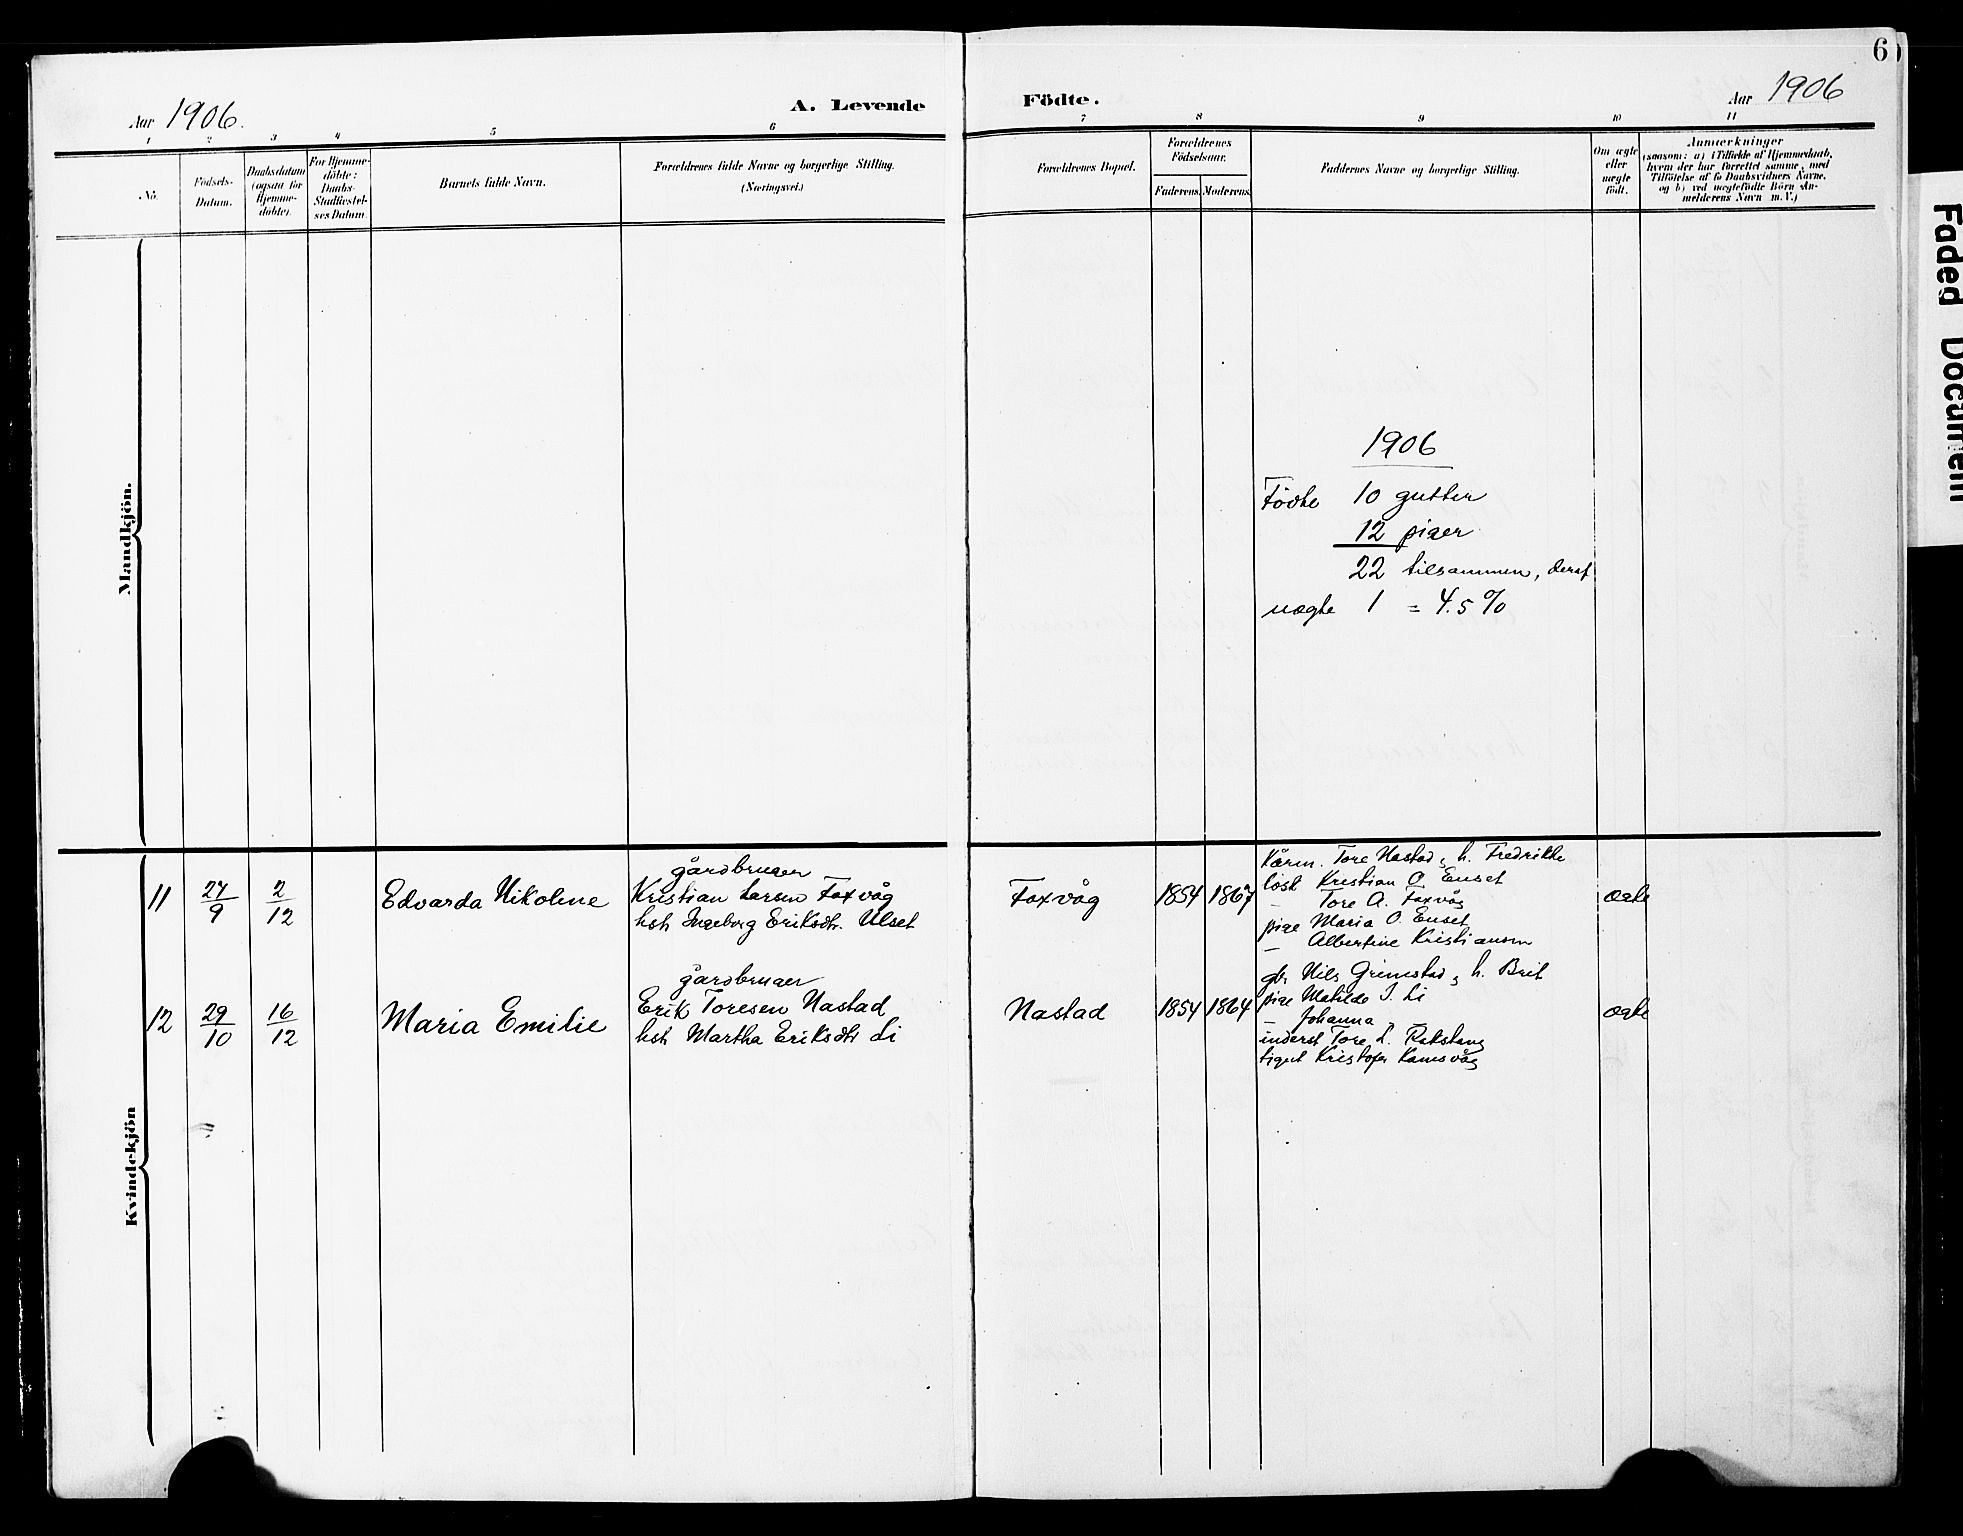 6
Aar 1906.
A. Levende
Födte.
Aar 1906
1 2 3 4 5 6 7 8 9 10 11
No.
Födsels-
Datum.
Daabsdatum
(ogsaa for
Hjemme-
döbte).
For Hjemme-
döbte:
Daabs-
Stadfæstel-
ses Datum.
Barnets fulde Navn.
Forældrenes fulde Navne og borgerlige Stilling.
(Næringsvei.)
Forældrenes Bopæl.
Forældrenes
Födselsaar.
Faderens. Moderens.
Faddernes Navne og borgerlige Stilling.
Om ægte
eller
uægte
födt.
Anmærkninger
(saasom: a) i Tilfælde af Hjemmedaab,
hvem der har forrettet samme, med
Tilföielse af to Daabsvidners Navne,
og b) ved uægtefödte Börn An-
melderens Navn m. V.)
Mandkjön.
1906
Fødte 10 gutter
12 piger
22 tilsammen, deraf
uægte 1 = 4.5 %
Kvindekjön
11 27/9 2/12 Edvarda Nikoline
gårdbruger
Kristian Larsen Foxvåg
hst Ingeborg Eriksdtr. Ulset
Foxvåg 1854 1867
Kårm. Tore Nastad, h. Fredrikke
løsk Kristian O. Enset
– Tore A. Foxvåg
pige Maria O. Enset
– Albertine Kristiansen
ægte
12 29/10 16/12 Maria Emilie
gårdbruger
Erik Toresen Nastad
hst Martha Eriksdtr Li
Nastad 1854 1864
gbr Nils Grimstad, h. Brit
pige Matilde J. Li
– Johanna –
inderst Tore L. Rokstang
tigut Kristofer Kamsvåg
ægte
Faded Document